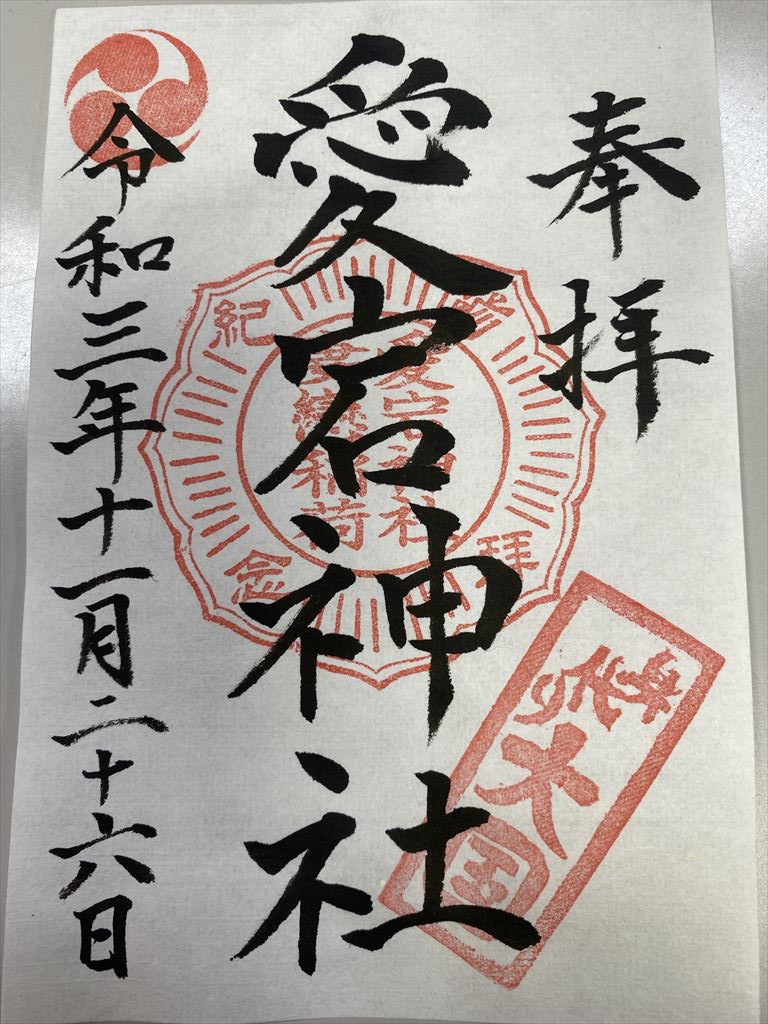 奉拝
愛宕神社
令和三年十一月二十六日
參拝紀念
愛宕神社
稲荷
身代り大国